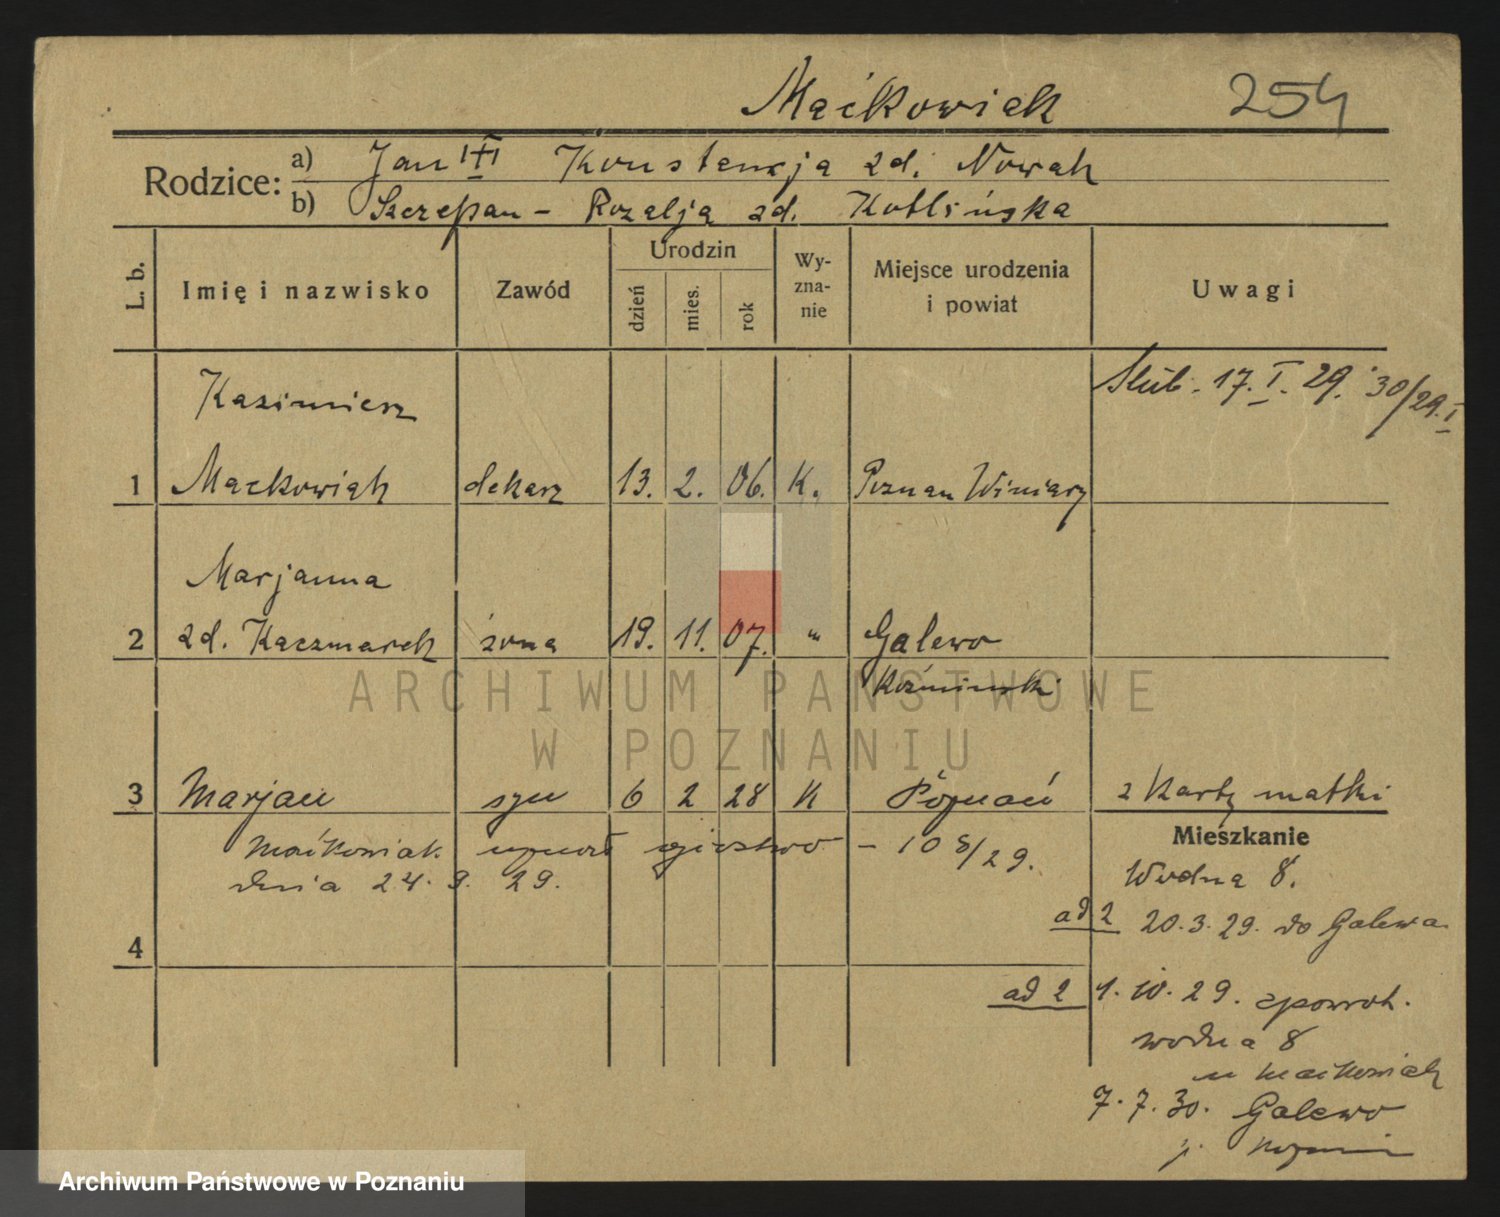 Maćkowiak 254
Rodzice:
a) Jan III Konstancja zd. Nowak
b) Szczepan – Rozalja zd. Kotlińska
L. b.
Imię i nazwisko
Zawód
Urodzin
dzień
mies.
rok
Wy-
zna-
nie
Miejsce urodzenia
i powiat
Uwagi
Kazimierz
Ślub. 17. I. 29. 30/29. I
1 Maćkowiak dekarz 13. 2. 06. K. Poznań Winiary
Marjanna
2 zd. Kaczmarek żona 19. 11. 07. " Galewo
Koźmiński
ARCHIWUM PAŃSTWOWE
W POZNANIU
3 Marjan syn 6 2 28 K Poznań z karty matki
Maćkowiak uznał ojcostwo – 108/29.
dnia 24. 9. 29.
4
Mieszkanie
Wodna 8.
ad 2 20.3.29. do Galewa
ad 2 1. 10. 29. zpowrot.
wodna 8
u Maćkowiak
7. 7. 30. Galewo
Archiwum Państwowe w Poznaniu